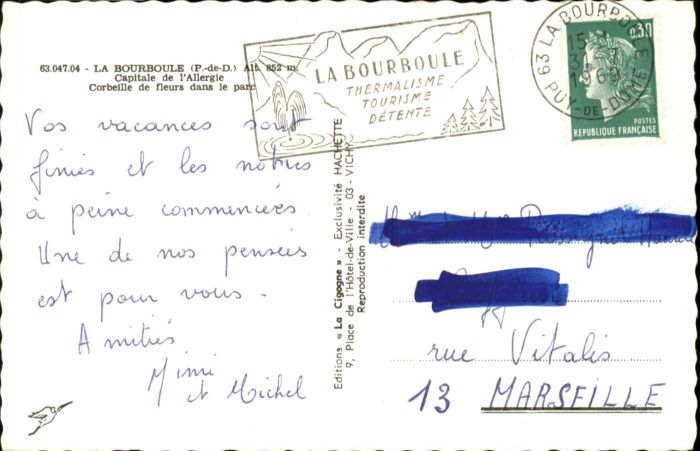 63.047.04 - LA BOURBOULE (P.-de-D.) Alt. 852 m.
Capitale de l'Allergie
Corbeille de fleurs dans le parc
LA BOURBOULE
THERMALISME
TOURISME
DÉTENTE
63 LA BOURBOULE
15
1969
PUY-DE-DÔME
0,30
POSTES
REPUBLIQUE FRANÇAISE
Vos vacances sont
finies et les nôtres
à peine commencées
Une de nos pensées
est pour vous.
Amitiés
Mimi
et Michel
Editions « La Cigogne » - Exclusivité HACHETTE
9, Place de l'Hôtel-de-Ville - 03 - VICHY
Reproduction interdite
rue Vitalis
13 MARSEILLE